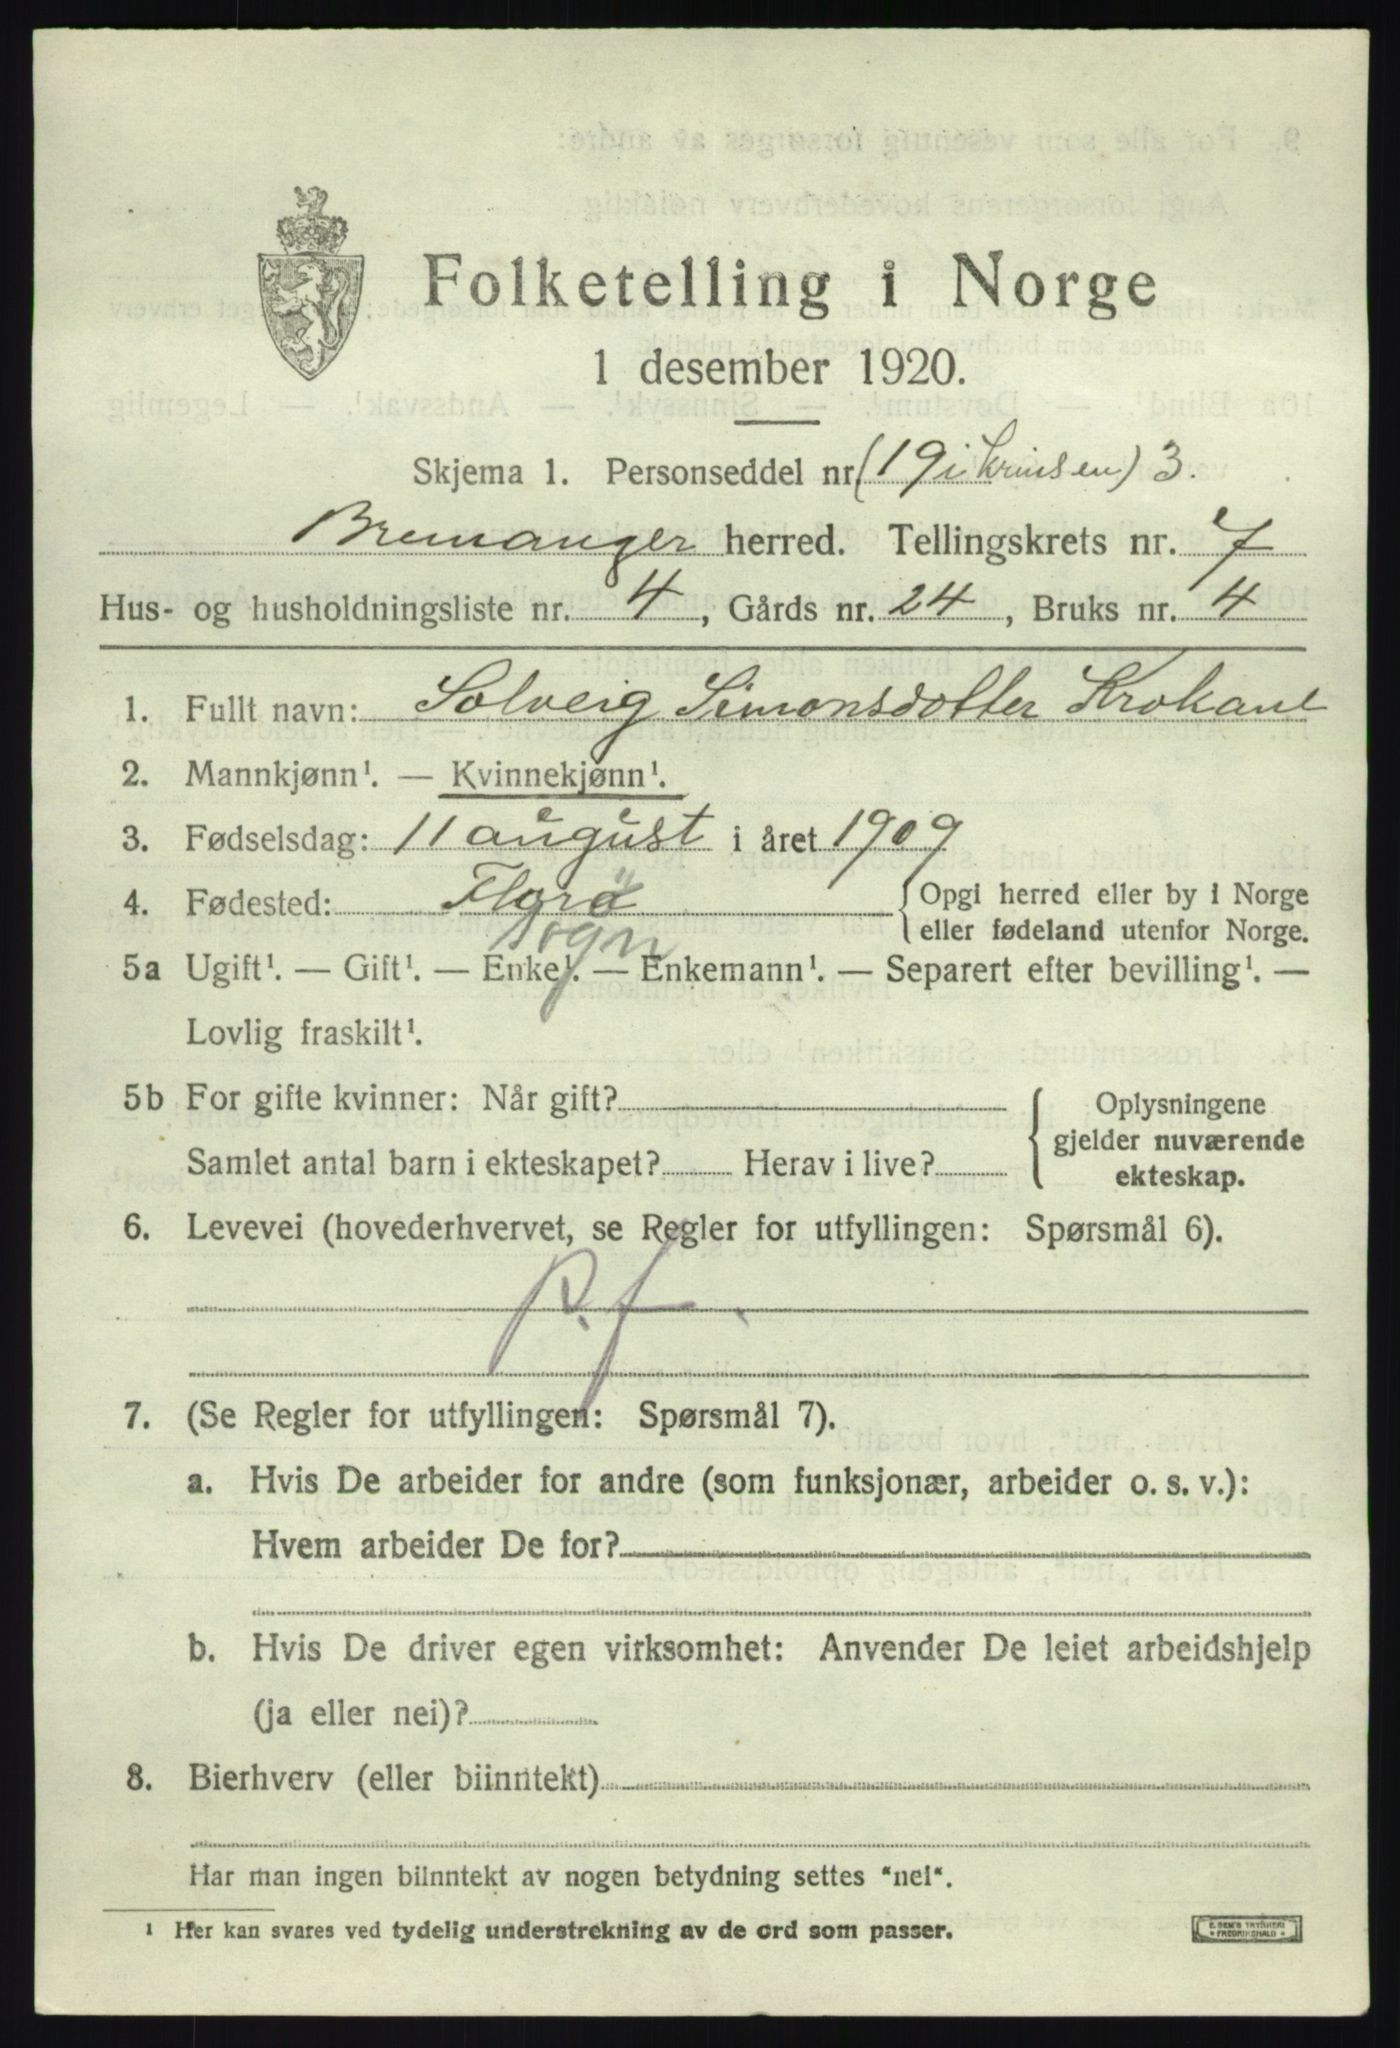 Folketelling i Norge
1 desember 1920.
Skjema 1. Personseddel nr. (19 i krinsen) 3.
Bremanger herred. Tellingskrets nr. 7
Hus- og husholdningsliste nr. 4, Gårds nr. 24, Bruks nr. 4
1. Fullt navn: Solveig Simonsdotter Krokane
2. Mannkjønn¹. — Kvinnekjønn¹.
3. Fødselsdag: 11 august i året 1909
4. Fødested: Florö { Opgi herred eller by i Norge
eller fødeland utenfor Norge.
Sogn
5a Ugift¹. — Gift¹. — Enke¹. — Enkemann¹. — Separert efter bevilling¹. —
Lovlig fraskilt¹.
5b For gifte kvinner: Når gift?
Samlet antal barn i ekteskapet? Herav i live?
{ Oplysningene
gjelder nuværende
ekteskap.
6. Levevei (hovederhvervet, se Regler for utfyllingen: Spørsmål 6).
p. f.
7. (Se Regler for utfyllingen: Spørsmål 7).
a. Hvis De arbeider for andre (som funksjonær, arbeider o. s. v.):
Hvem arbeider De for?
b. Hvis De driver egen virksomhet: Anvender De leiet arbeidshjelp
(ja eller nei)?
8. Bierhverv (eller biinntekt)
Har man ingen biinntekt av nogen betydning settes "nei".
¹ Her kan svares ved tydelig understrekning av de ord som passer.